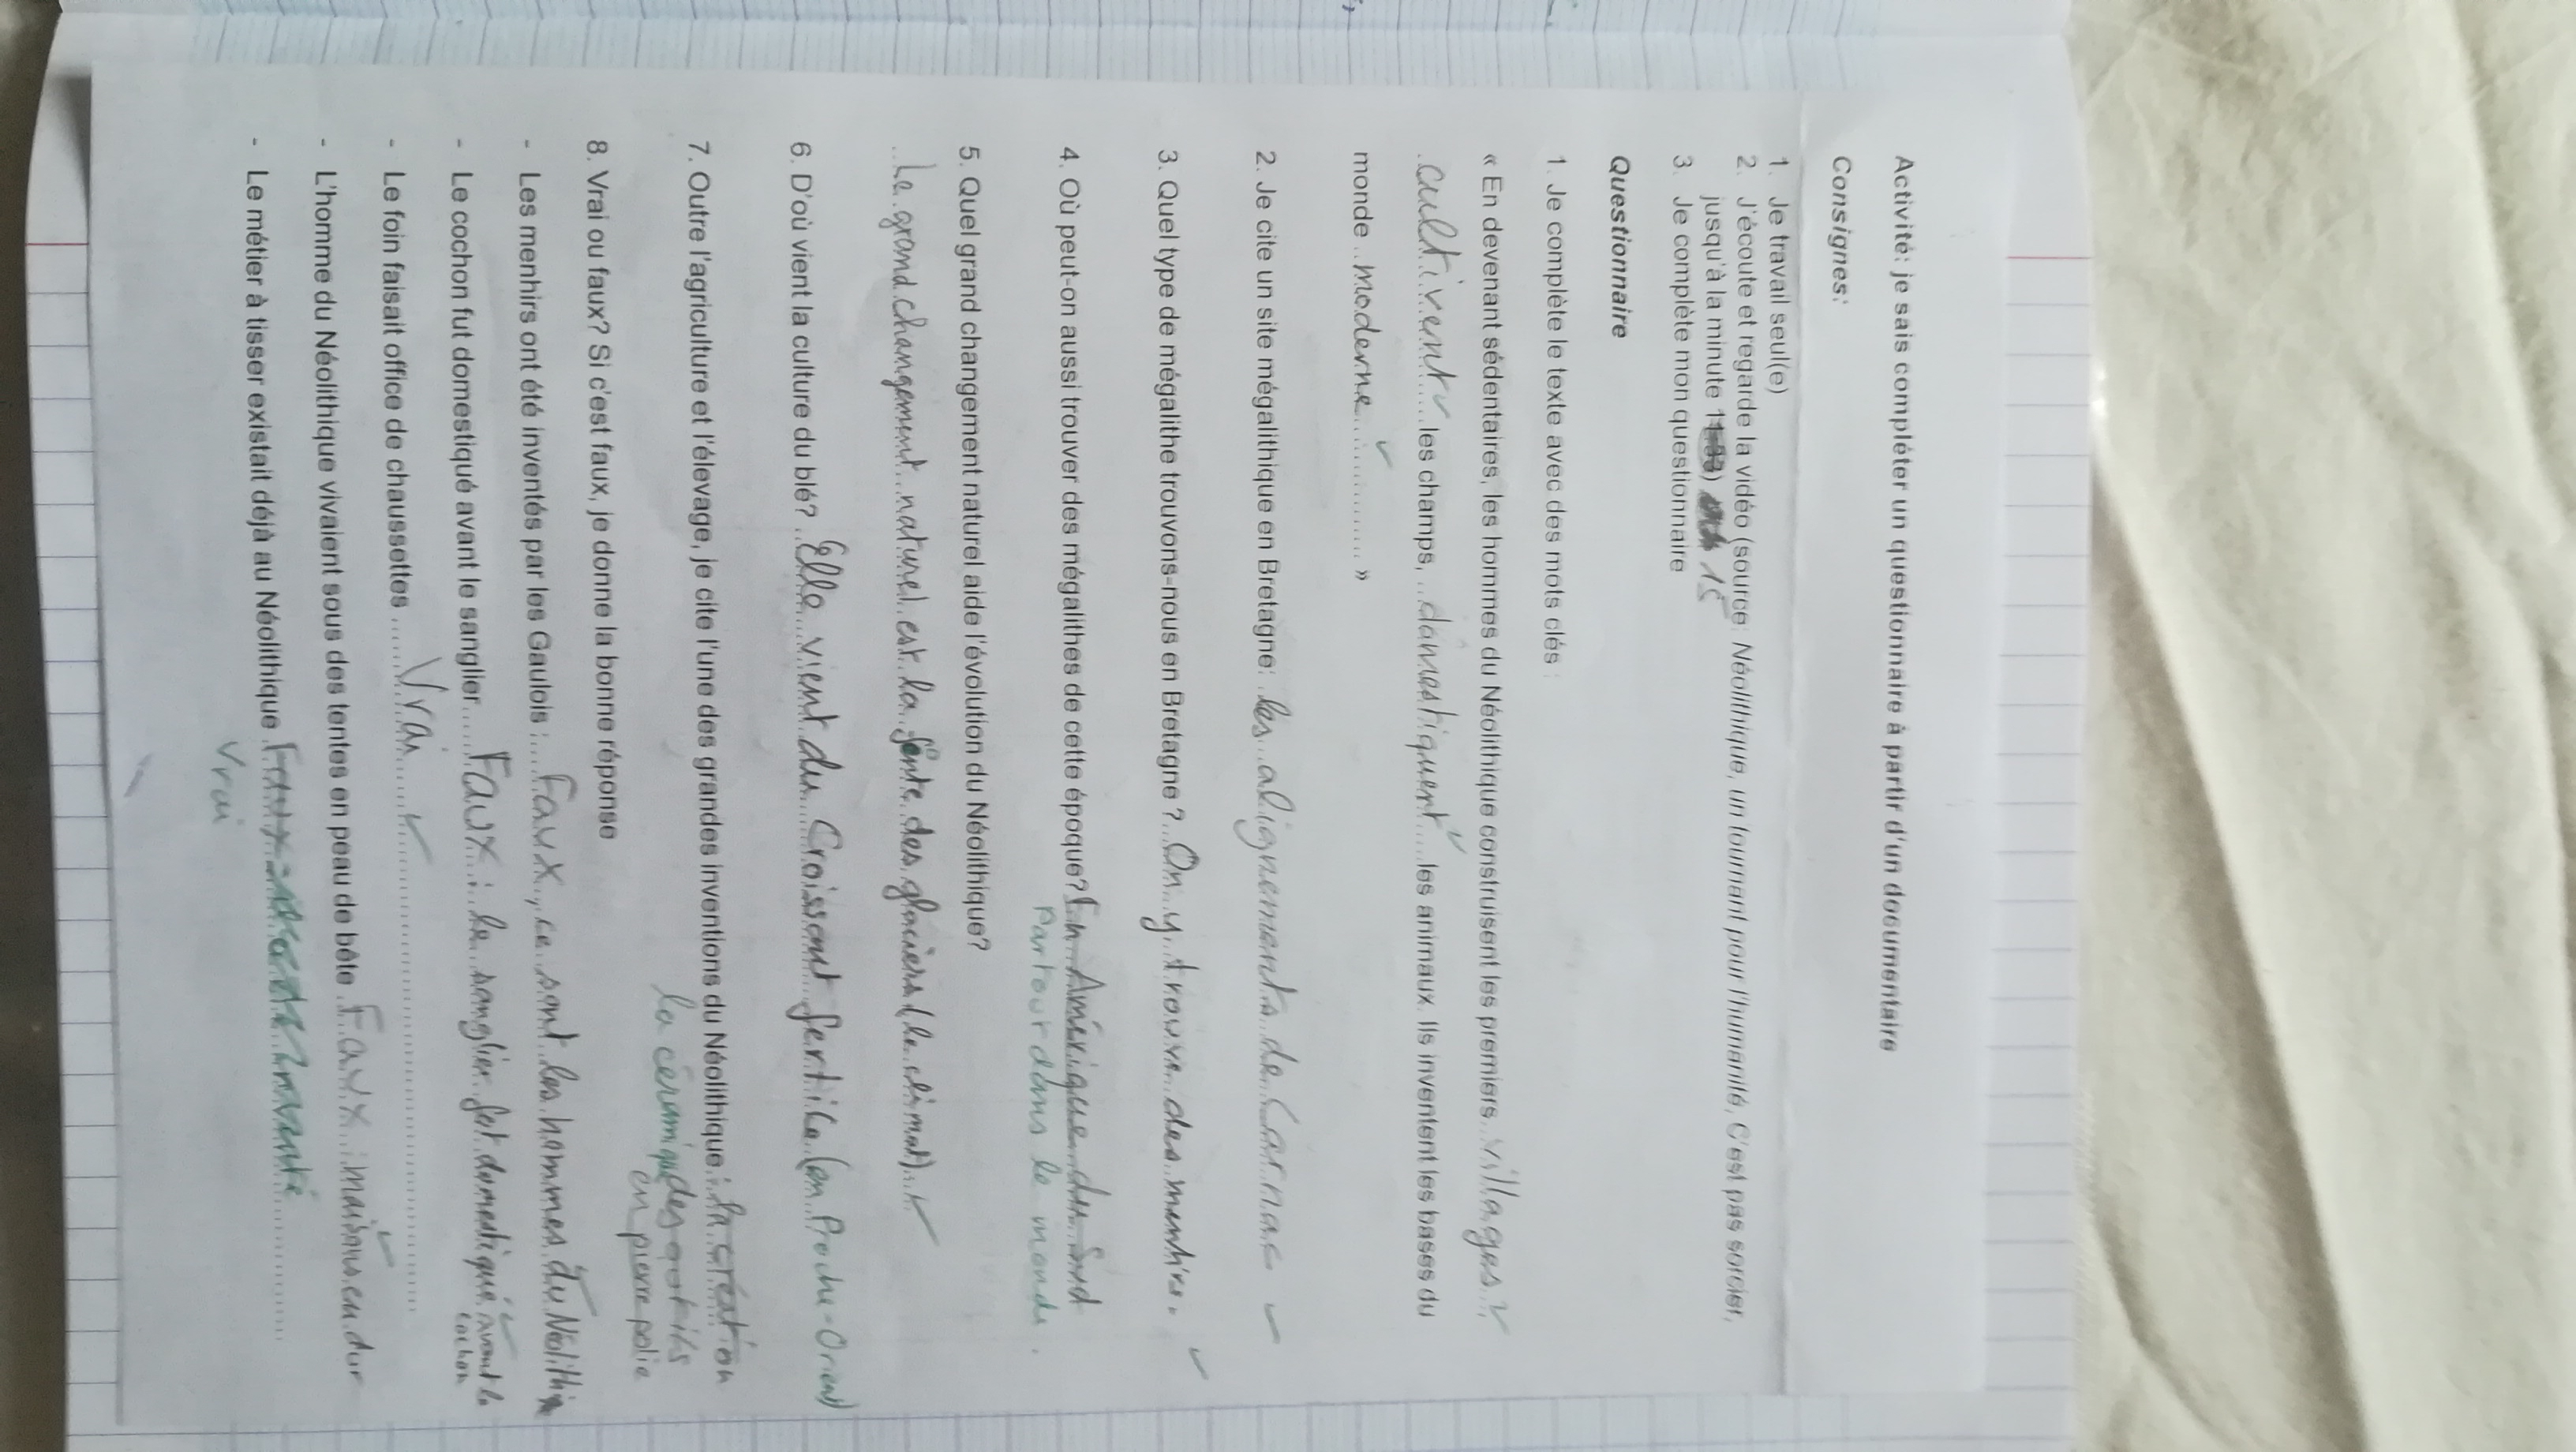 Activité: je sais compléter un questionnaire à partir d'un documentaire
Consignes:
1. Je travail seul(e)
2. J'écoute et regarde la vidéo (source: Néolithique, un tournant pour l'humanité, C'est pas sorcier,
jusqu'à la minute 15
3. Je complète mon questionnaire
Questionnaire
1. Je complète le texte avec des mots clés :
« En devenant sédentaires, les hommes du Néolithique construisent les premiers villages
cultivent les champs, domestiquent les animaux. Ils inventent les bases du
monde moderne »
2. Je cite un site mégalithique en Bretagne: les alignements de Carnac
3. Quel type de mégalithe trouvons-nous en Bretagne ? On y trouve des menhirs.
4. Où peut-on aussi trouver des mégalithes de cette époque? En Amérique du Sud
Partout dans le monde.
5. Quel grand changement naturel aide l'évolution du Néolithique?
Le grand changement naturel est la fonte des glaciers (le climat).
6. D'où vient la culture du blé? Elle vient du Croissant fertile (en Proche-Orient)
7. Outre l'agriculture et l'élevage, je cite l'une des grandes inventions du Néolithique : la création
la céramique des outils
en pierre polie
8. Vrai ou faux? Si c'est faux, je donne la bonne réponse
- Les menhirs ont été inventés par les Gaulois : Faux, ce sont les hommes du
- Le cochon fut domestiqué avant le sanglier Faux : le sanglier fut domestiqué avant le
cochon
- Le foin faisait office de chaussettes Vrai
- L'homme du Néolithique vivaient sous des tentes en peau de bête Faux : maisons en dur
- Le métier à tisser existait déjà au Néolithique Faux
Vrai